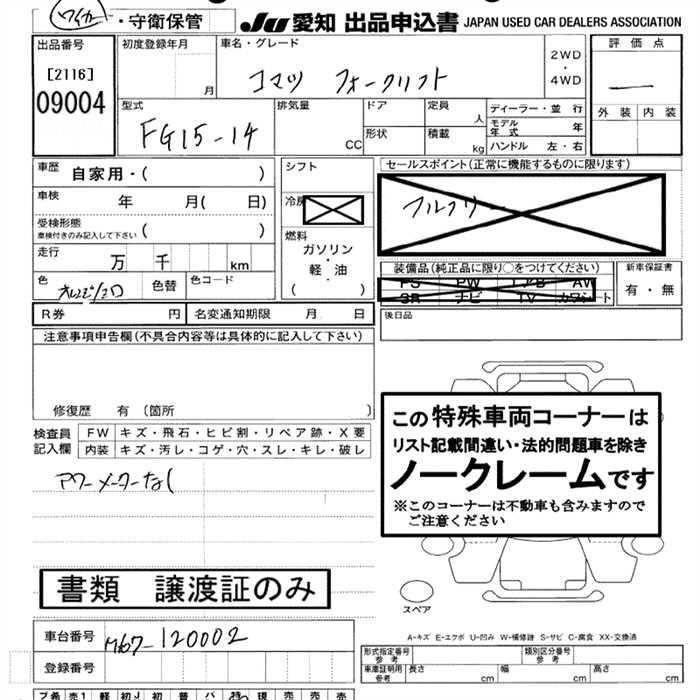 ・守衛保管
JU 愛知 出品申込書 JAPAN USED CAR DEALERS ASSOCIATION
出品番号
[2116]
09004
初度登録年月
月
車名・グレード
コマツ フォークリフト
2WD
・
4WD
評価点
外装 内装
型式
FG15-14
排気量
CC
ドア
形状
定員
人
積載
kg
ディーラー・並 行
モデル年式 年
ハンドル 左・右
車歴 自家用・( )
車検 年 月( 日)
受検形態
車検付きのみ記入して下さい ( )
走行 万 千 km
色
色替
色コード
シフト
冷房
燃料
ガソリン
軽・油
( )
セールスポイント(正常に機能するものに限ります)
フルフリー
装備品(純正品に限り○をつけてください)
PS PW エアB AW
SR ナビ TV カワシート
新車保証書
有・無
R券 円 名変通知期限 月 日
後日品
注意事項申告欄(不具合内容等は具体的に記入して下さい)
修復歴 有(箇所 )
検査員
記入欄
FW キズ・飛石・ヒビ割・リペア跡・X要
内装 キズ・汚レ・コゲ・穴・スレ・キレ・破レ
アワーメーターなし
この特殊車両コーナーは
リスト記載間違い・法的問題車を除き
ノークレームです
※このコーナーは不動車も含みますので
ご注意ください
書類 譲渡証のみ
スペア
A-キズ E-エクボ U-凹み W-補修跡 S-サビ C-腐食 XX-交換済
車台番号 M67-120002
登録番号
形式指定番号
参考
類別区分番号
参考
車庫証明用
参考
長さ cm 幅 cm 高さ cm